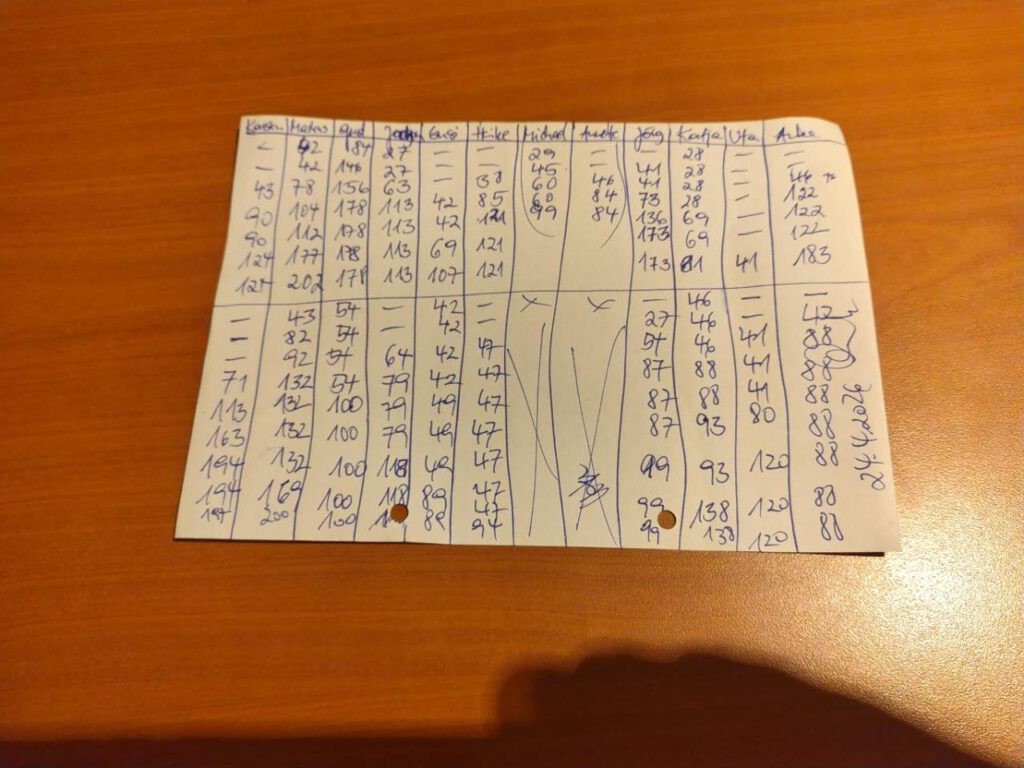 Karin Markus Gerd Jochen Gusi Heike Michael Anette Jörg Katja Uta Anke
— 42 84 27 — — 29 — — 28 — —
— 42 146 27 — 38 45 46 41 28 — 44
43 78 156 63 — 85 60 84 41 28 — 122
90 104 178 113 42 121 60 84 73 28 — 122
90 112 178 113 42 121 99 136 69 — 122
124 177 178 113 69 121 173 69 41 183
124 202 178 113 107 173 81
— 43 54 — 42 — x x — 46 — —
— 82 54 — 42 — 27 46 — 42
— 92 54 64 42 47 54 46 41 88
71 132 54 79 42 47 87 88 41 88
113 132 100 79 49 47 87 88 41 88
163 132 100 79 49 47 87 93 80 88
194 132 100 118 49 47 99 93 120 88
194 169 100 118 89 47 99 138 120 88
194 200 100 89 94 99 138 120 88
24.4.2026